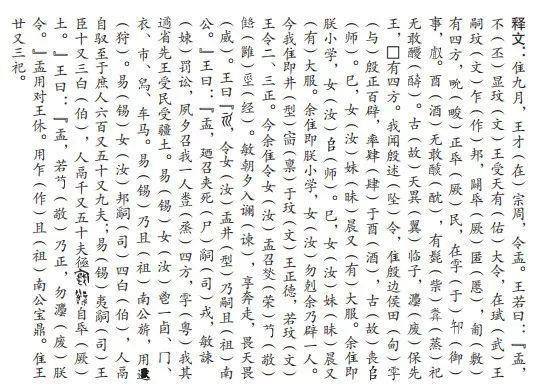 释文：隹九月，王才（在）宗周，令盂。王若曰：『盂，
不（丕）显玟（文）王受天有（佑）大令，在珷（武）王
嗣玟（文）乍（作）邦，闢氒（厥）匿（慝），匍（敷）
有四方，（畯）正氒（厥）民，在雩（于）卸（御）
事，酉（酒）无敢（酖），有髭（祡）蒸祀
无敢醻（醻）。古（故）天異（翼）临子，灋（废）保先
王，□有四方。我闻殷述（坠）令，隹殷边侯田（甸）雩
（与）殷正百辟，率肄（肆）于酉（酒），古（故）丧𠂤
（师）。巳，女（汝）妹（昧）晨又（有）大服。余隹即
朕小学，女（汝）𠂤（师）。巳，女（汝）妹（昧）晨又
（有）大服。余隹即朕小学，女（汝）勿剋余乃辟一人。
今我隹即井（型）㐭（禀）于玟（文）王正德，若玟（文）
王令二、三正。今余隹令女（汝）盂召焚（荣）苟（敬）
（雝）巠（经）。敏朝夕入谰（谏），享奔走，畏天畏
（威）。王曰『，令女（汝）盂井（型）乃嗣且（祖）南
公。』王曰：『盂，廼召夹死（尸）嗣（司）戎，敏諫
（敕）罚讼，夙夕召我一人（烝）四方，雩（粤）我其
遹省先王受民受疆土。易（锡）女（汝）鬯一卣、冂、
衣、巿、舄、车马。易（锡）乃且（祖）南公旂，用
（狩）。易（锡）女（汝）邦嗣（司）四白（伯），人鬲
自驭至于庶人六百又五十又九夫；易（锡）夷嗣（司）王
臣十又三白（伯），人鬲千又五十夫自氒（厥）
土。』王曰：『盂，若苟（敬）乃正，勿灋（废）朕
令。』盂用对王休。用乍（作）且（祖）南公宝鼎。隹王
廿又三祀。